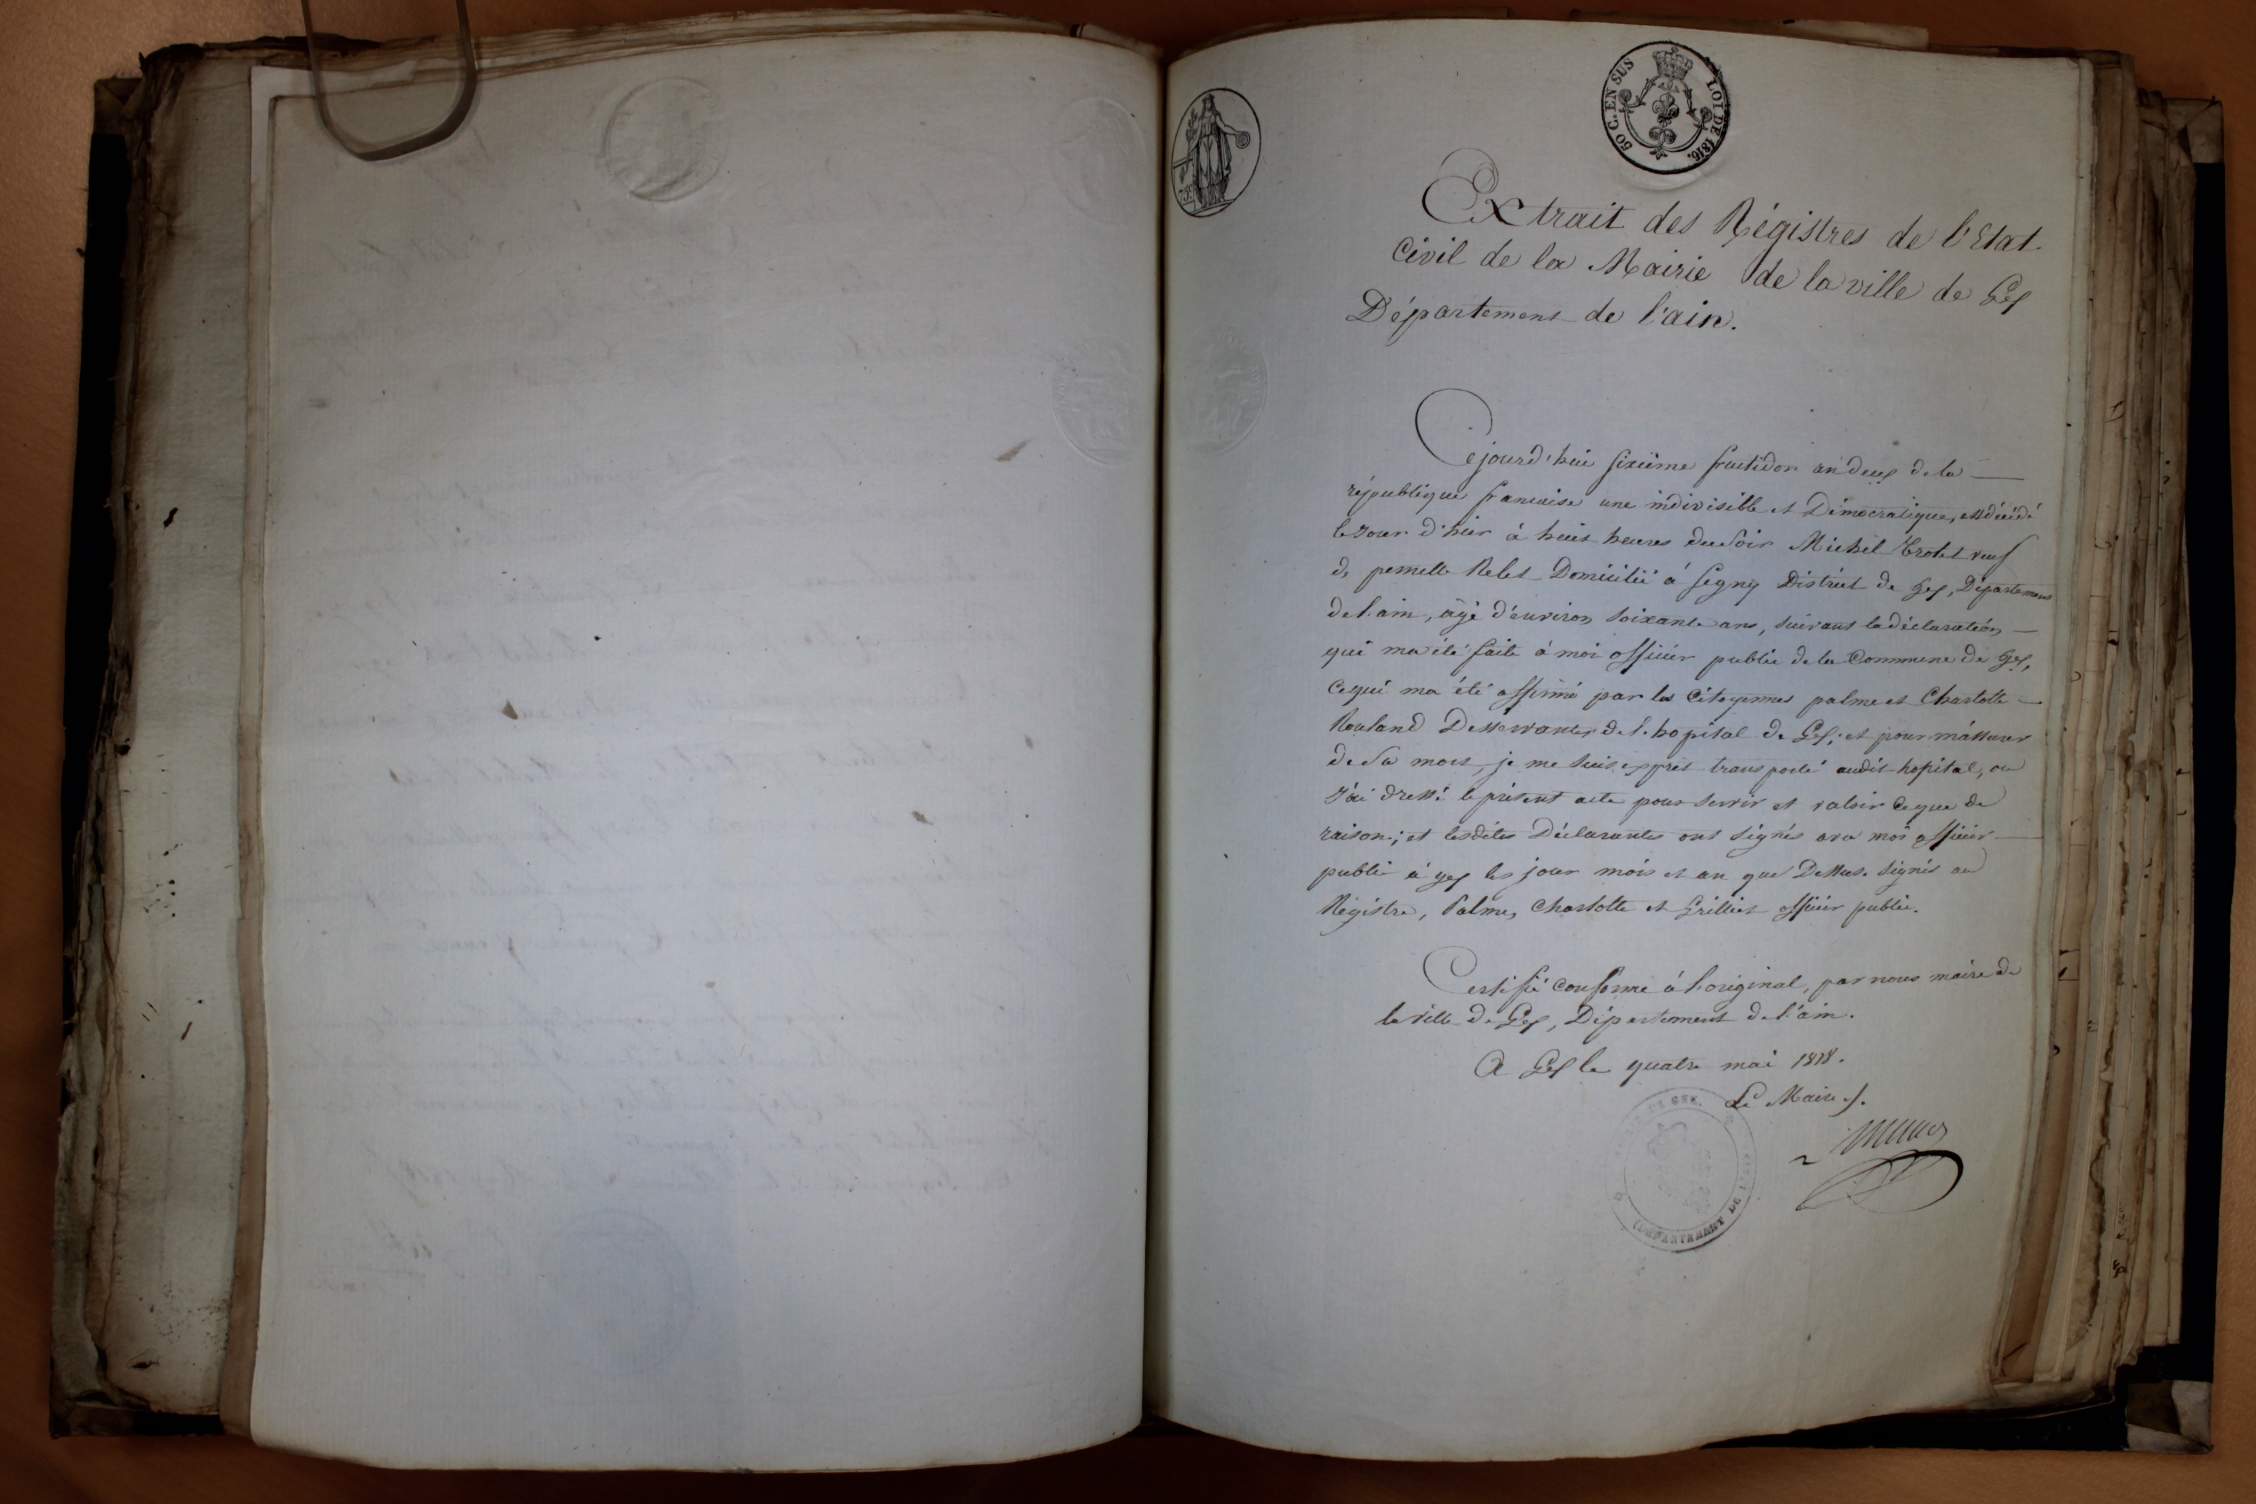 50 C. EN SUS LOI DE 1816.
Extrait des Régistres de l'Etat
Civil de la Mairie de la ville de Gex
Département de l'ain.
Cejourd'hui sixième fructidor an deux de la
république francaise une indivisible et Démocratique, est décédé
le jour d'hier à huit heures du soir Michel Trolet veuf
de pernette Relet Domicilié à Segny District de Gex, Département
de l'ain, âgé d'environ soixante ans, suivant la déclaration
qui ma été faite à moi officier public de la Commune de Gex,
Cequi ma été affirmé par les Citoyennes palme et Charlotte
Rouland Desservantes de l'hopital de Gex; et pour m'assurer
de sa mort, je me suis exprès transporté audit hopital, ou
J'ai dressé le présent acte pour servir et valoir ceque de
raison; et lesdites Déclarantes ont signés avec moi officier
public à gex les jour mois et an que Dessus. Signés au
Régistre, Palme, Charlotte et Grilliet officier public.
Certifié conforme à l'original, par nous maire de
la ville de Gex, Département de l'ain.
A Gex le quatre mai 1818.
Le Maire
DE GEX.
DÉPARTEMENT DE